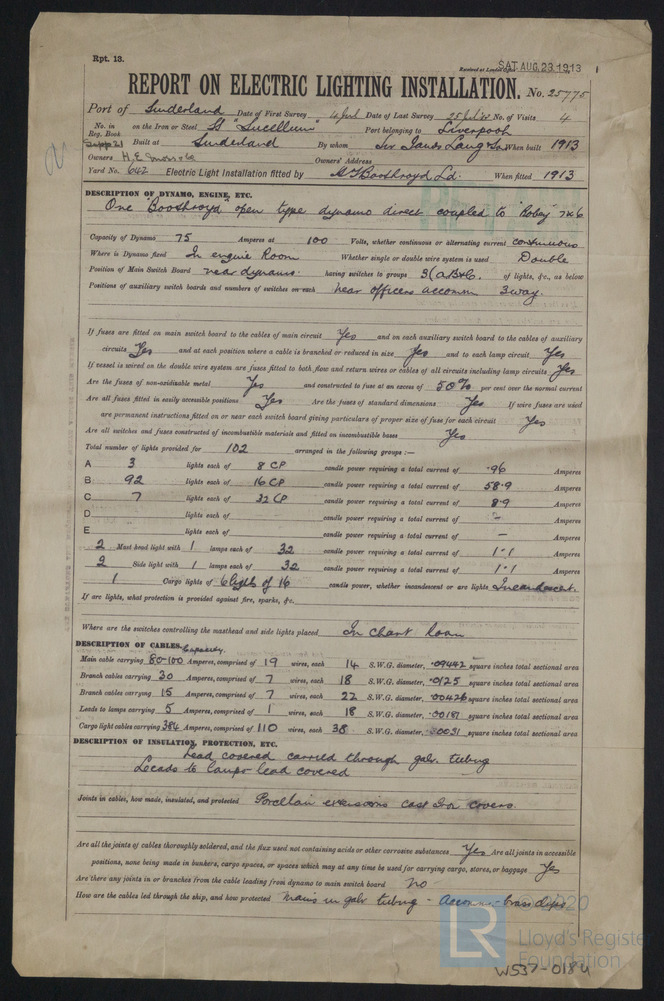 Rpt. 13.
Received at London Office SAT. AUG. 23. 1913
REPORT ON ELECTRIC LIGHTING INSTALLATION. No. 25775
Port of Sunderland Date of First Survey Date of Last Survey No. of Visits 4
No. in Reg. Book on the Iron or Steel SS "Lucellum" Port belonging to Liverpool
Built at Sunderland By whom When built 1913
Owners Owners' Address
Yard No. 642 Electric Light Installation fitted by When fitted 1913
DESCRIPTION OF DYNAMO, ENGINE, ETC.
One "Boothroyd" open type dynamo direct coupled to "Robey" 7x6
Capacity of Dynamo 75 Amperes at 100 Volts, whether continuous or alternating current continuous
Where is Dynamo fixed In engine Room Whether single or double wire system is used Double
Position of Main Switch Board near dynamo having switches to groups 3 (A.B&C. of lights, &c., as below
Positions of auxiliary switch boards and numbers of switches on each near officers accomm 3 way.
If fuses are fitted on main switch board to the cables of main circuit Yes and on each auxiliary switch board to the cables of auxiliary
circuits Yes and at each position where a cable is branched or reduced in size Yes and to each lamp circuit Yes
If vessel is wired on the double wire system are fuses fitted to both flow and return wires or cables of all circuits including lamp circuits Yes
Are the fuses of non-oxidizable metal Yes and constructed to fuse at an excess of 50% per cent over the normal current
Are all fuses fitted in easily accessible positions Yes Are the fuses of standard dimensions Yes If wire fuses are used
are permanent instructions fitted on or near each switch board giving particulars of proper size of fuse for each circuit Yes
Are all switches and fuses constructed of incombustible materials and fitted on incombustible bases Yes
Total number of lights provided for 102 arranged in the following groups :—
A 3 lights each of 8 CP candle power requiring a total current of .96 Amperes
B 92 lights each of 16 CP candle power requiring a total current of 58.9 Amperes
C 7 lights each of 32 CP candle power requiring a total current of 8.9 Amperes
D lights each of candle power requiring a total current of - Amperes
E lights each of candle power requiring a total current of - Amperes
2 Mast head light with 1 lamps each of 32 candle power requiring a total current of 1.1 Amperes
2 Side light with 1 lamps each of 32 candle power requiring a total current of 1.1 Amperes
1 Cargo lights of 6 lights of 16 candle power, whether incandescent or arc lights Incandescent.
If arc lights, what protection is provided against fire, sparks, &c.
Where are the switches controlling the masthead and side lights placed In Chart Room
DESCRIPTION OF CABLES. Capacity.
Main cable carrying 80-100 Amperes, comprised of 19 wires, each 14 S.W.G. diameter, .09442 square inches total sectional area
Branch cables carrying 30 Amperes, comprised of 7 wires, each 18 S.W.G. diameter, .0125 square inches total sectional area
Branch cables carrying 15 Amperes, comprised of 7 wires, each 22 S.W.G. diameter, .00426 square inches total sectional area
Leads to lamps carrying 5 Amperes, comprised of 1 wires, each 18 S.W.G. diameter, .00181 square inches total sectional area
Cargo light cables carrying 3.84 Amperes, comprised of 110 wires, each 38 S.W.G. diameter, .0031 square inches total sectional area
DESCRIPTION OF INSULATION, PROTECTION, ETC.
Lead covered carried through galv. tubing
Leads to lamps lead covered
Joints in cables, how made, insulated, and protected Porcelain extensions cast Iron covers.
Are all the joints of cables thoroughly soldered, and the flux used not containing acids or other corrosive substances Yes Are all joints in accessible
positions, none being made in bunkers, cargo spaces, or spaces which may at any time be used for carrying cargo, stores, or baggage Yes
Are there any joints in or branches from the cable leading from dynamo to main switch board no
How are the cables led through the ship, and how protected Mains in galv tubing - Accomm - brass
© 2020
LR
Lloyd's Register
Foundation
W537-0184